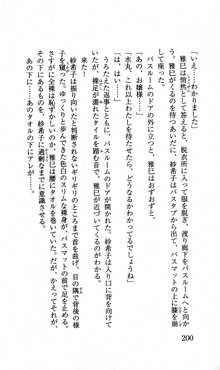 「いえ……わかりました」
雅巳は悄然として答えると、脱衣所に入って服を脱ぎ、渡り廊下をバスルームへと向か
う。雅巳がくるのを待つあいだに、紗希子はバスタブから上がり、バスマットの上に膝を崩
して座った。
「あの、お嬢様……」
バスルームのドアの外に立つと、雅巳が
「水丸、これ以上わたしを待たせたら、どうなるかわかってるでしょうね」
「は、はい……」
うろたえた返事とともに、バスルームのドアが開かれた。紗希子は入り口に背を向けて
いたが、裸足が濡れたタイルを踏む音で、雅巳が近づいてくるのがわかる。
紗希子は振り向いたと判断されないギリギリのところまで首を曲げ、目の隅で背後の様
子を窺った。ゆっくりと歩んできた色白のスリムな裸身が、バスマットの前で足を止める。
さすがに全裸は恥ずかしいのか、雅巳は腰にタオルを巻いていた。だが、かえってそれが、
あの下に……あのタオルの下にアレが、と、紗希子に過剰なまでに意識させてしまう。
200